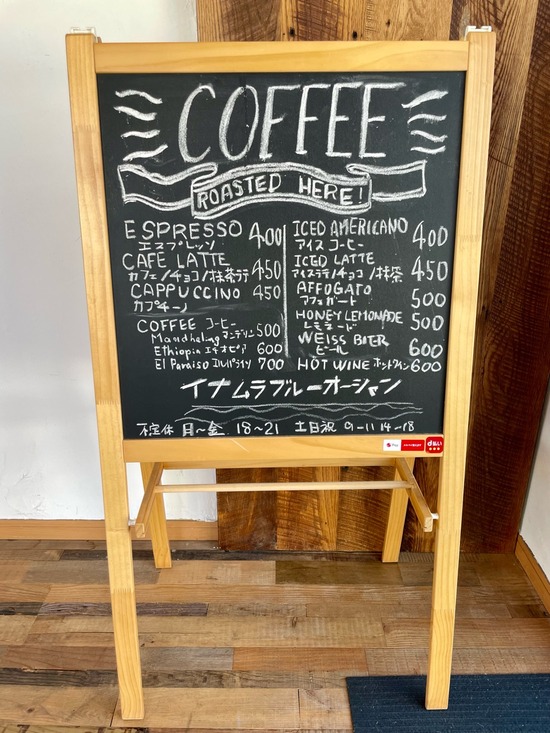 COFFEE
ROASTED HERE!
ESPRESSO 400
エスプレッソ
CAFE LATTE 450
カフェ/チョコ/抹茶ラテ
CAPPUCCINO 450
カプチーノ
COFFEE コーヒー
Mandheling マンデリン 500
Ethiopia エチオピア 600
El Paraiso エルパライソ 700
ICED AMERICANO 400
アイス コーヒー
ICED LATTE 450
アイスラテ/チョコ/抹茶
AFFOGATO 500
アフォガート
HONEY LEMONADE 500
レモネード
WEISS BIER 600
ビール
HOT WINE ホットワイン 600
イナムラブルーオーシャン
不定休 月〜金 18~21 土日祝 9-11 14-18
d払い